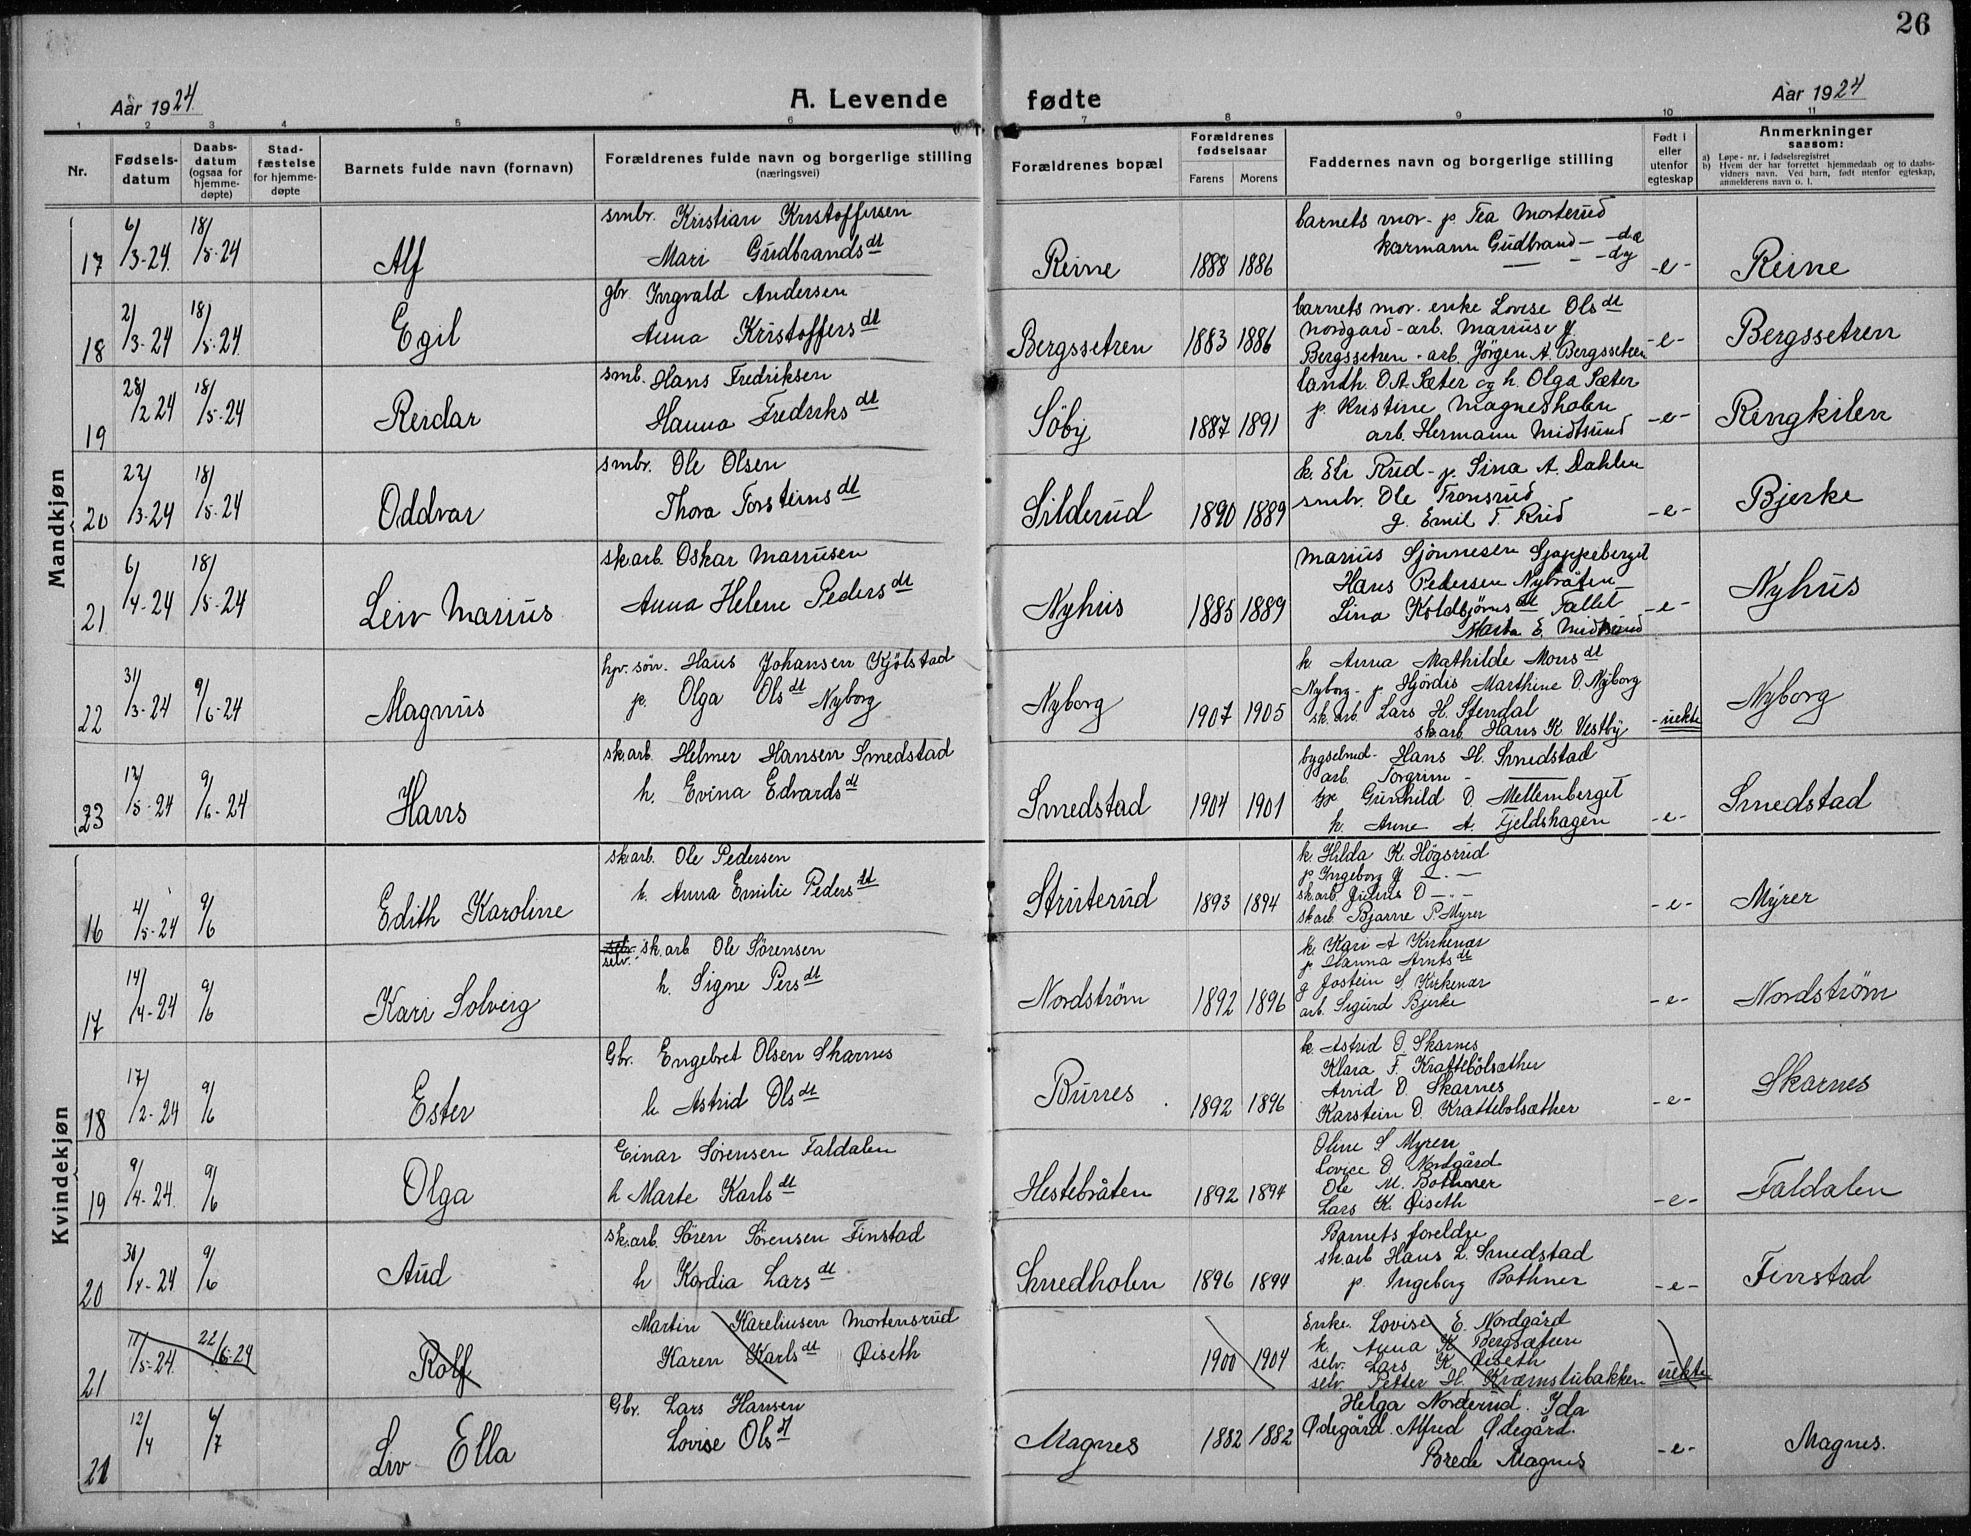 26
Aar 1924.
A. Levende fødte
Aar 1924
1 2 3 4 5 6 7 8 9 10 11
Nr.
Fødsels-
datum
Daabs-
datum
(ogsaa for
hjemme-
døpte)
Stad-
fæstelse
for hjemme-
døpte
Barnets fulde navn (fornavn)
Forældrenes fulde navn og borgerlige stilling
(næringsvei)
Forældrenes bopæl
Forældrenes
fødselsaar
Farens Morens
Faddernes navn og borgerlige stilling
Født i
eller
utenfor
egteskap
Anmerkninger
saasom:
a) Løpe-nr. i fødselsregistret
b) Hvem der har forrettet hjemmedaab og to daabs-
vidners navn. Ved barn, født utenfor egteskap,
anmelderens navn o. l.
Mandkjøn
17 6/3-24. 18/5-24 Alf
smbr. Kristian Kristoffersen
Mari Gudbrandsdt
Reine 1888 1886
barnets mor - p Tea Morterud
Karmann Gudbrand — -de
— - -dy
-e- Reine
18 2/3-24 18/5-24. Egil
gbr. Ingvald Andersen
Anna Kristoffersdt
Bergssetren 1883 1886
barnets mor. enke Lovise Olsdt
Nordgard - arb. Marius J.
Bergssetren - arb. Jörgen A. Bergssetren
-e- Bergssetren
19 28/2 24 18/5-24 Reidar
smb. Hans Fredriksen
Hanna Fredriksdt
Söby 1887 1891
landh. O.A. Sæter og h. Olga Sæter
p. Kristine Magnesholen
arb. Hermann Midtsund
-e- Ringkilen
20 22/3-24 18/5-24 Oddvar
smbr. Ole Olsen
Thora Torsteinsdt
Silderud 1890 1889
k. Eli Rud - p. Sina A. Dahlen
smbr. Ole Tronsrud
g. Emil T. Rud
-e- Bjerke
21 6/4-24 18/5-24 Leiv Marius
sk.arb. Oskar Mariusen
Anna Helene Pedersdt
Nyhus 1885 1889
Marius Gjönnesen Gjøppeberget
Hans Pedersen Nybråten
Lina Koldbjörnsdt Fallet
Marta E. Midtsund
-e- Nyhus
22 31/3-24 9/6-24 Magnus
hpr. sön. Hans Johansen Kjölstad
p. Olga Olsdt Nyborg
Nyborg 1907 1905
k. Anna Mathilde Monsdt
Nyborg - p. Hjördis Marthine O. Nyborg
sk.arb. Lars H. Stendal
sk.arb. Hans K. Vestby
-uekte Nyborg
23 12/5-24 9/6-24 Hans
sk.arb. Helmer Hansen Smedstad
h. Evina Edvardsdt
Smedstad 1904 1901
bygselmd. Hans H. Smedstad
arb. Torgrim - —
Gunhild O. Mellemberget
k. Anne A. Fjeldshagen
-e- Smedstad
Kvindekjøn
16 4/5-24 9/6 Edith Karoline
sk.arb. Ole Pedersen
h. Anna Emilie Pedersdt
Struterud 1893 1894
k. Hilda K. Högsrud
p Ingeborg J — . —
sk.arb. Julius O — . -
sk.arb. Bjarne P. Myrer
-e- Myrer
17 14/4-24 9/6 Kari Solveig
selv. sk.arb Ole Sørensen
h. Signe Persdt
Nordstrøm 1892 1896
k. Kari A Kirkenær
p Hanna Arntsdt
g Jostein S Kirkenær
arb. Sigurd Bjerke
-e- Nordstrøm
18 17/2-24 9/6 Ester
Gbr. Engebret Olsen Skarnes
h Astrid Olsdt
Bunes 1892 1896
k. Astrid O. Skarnes
Klara F. Krattebölsæther
Arvid O. Skarnes
Karstein O. Krattebolsæther
-e- Skarnes
19 9/4-24. 9/6 Olga
Einar Sörensen Faldalen
h Marte Karlsdt
Hestebråten 1892 1894
Oline S Myren
Lovise O. Nordgård
Ole M. Bothner
Lars K. Øiseth
-e- Faldalen
20 30/4-24 9/6 Aud
sk.arb. Sören Sörensen Finstad
h Kordia Larsdt
Smedholen 1896 1894
Barnets foreldre
sk.arb Hans L. Smedstad
p. Ingeborg Bothner
-e- Finstad
21 11/5-24 22/6-24 Rolf
Martin Kareliusen Mortensrud
Karen Karlsdt Øiseth
1900 1904
Enke. Lovise E. Nordgård
k. Anna K Bergsæteren
selv. Lars K Øiseth
selv. Petter H. Kræmstubakken
uekte
21 12/4 6/7 Liv Ella
Gbr. Lars Hansen
Lovise Olsdt
Magnes 1882 1882
Helga Norderud. Ida
Ødegård. Alfred Ødegård.
Brede Magnes
-e- Magnes.